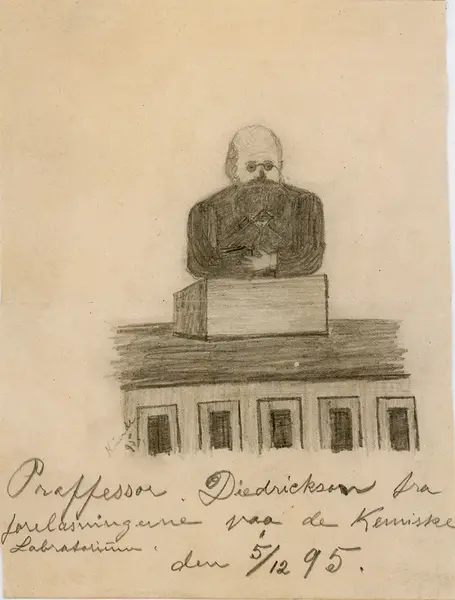 Proffessor. Diedrickson fra
forelæsningerne paa de Kemiske
Labratorium.
den 5/12 95.